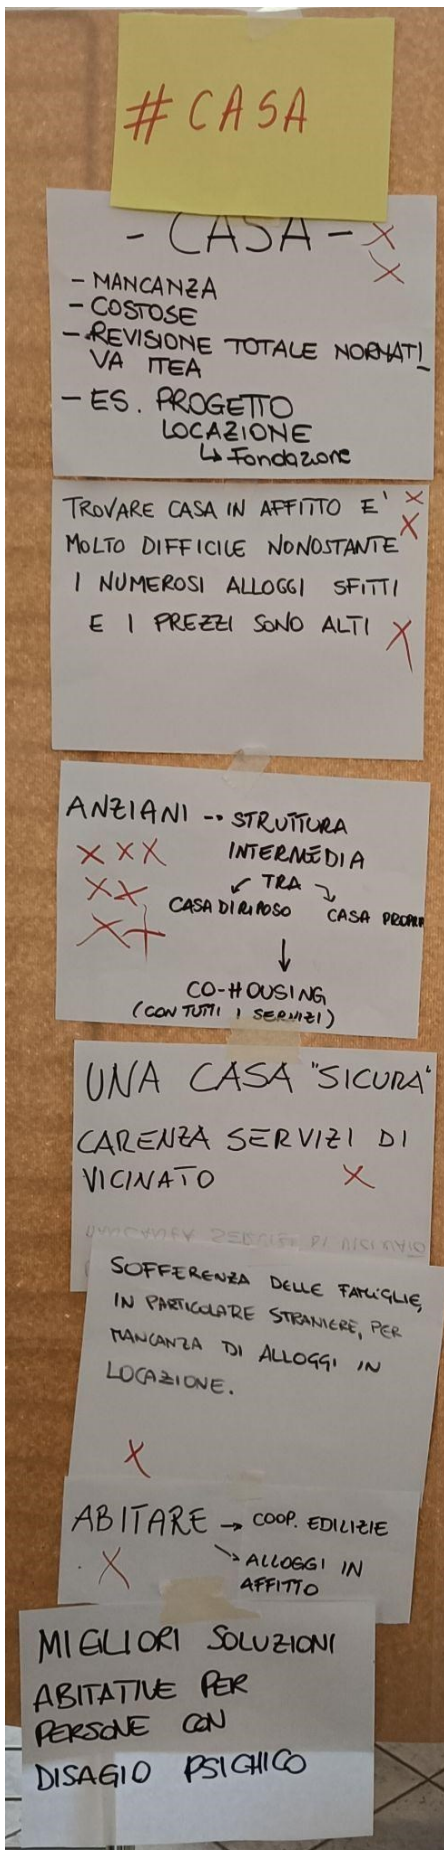 # CASA
- CASA - X
X
- MANCANZA
- COSTOSE
- REVISIONE TOTALE NORMATI_
VA ITEA
- ES. PROGETTO
LOCAZIONE
↳ Fondazione
TROVARE CASA IN AFFITTO E' X
MOLTO DIFFICILE NONOSTANTE X
I NUMEROSI ALLOGGI SFITTI
E I PREZZI SONO ALTI X
ANZIANI -- STRUTTURA
X X X INTERMEDIA
X X ↙ TRA ↘
CASA DI RIPOSO CASA PROPRIA
X X
↓
CO-HOUSING
(CON TUTTI I SERVIZI)
UNA CASA "SICURA"
CARENZA SERVIZI DI
VICINATO X
MANCANZA SERVIZI DI VICINATO
SOFFERENZA DELLE FAMIGLIE,
IN PARTICOLARE STRANIERE, PER
MANCANZA DI ALLOGGI IN
LOCAZIONE.
X
ABITARE → COOP. EDILIZIE
X ↘ ALLOGGI IN
AFFITTO
MIGLIORI SOLUZIONI
ABITATIVE PER
PERSONE CON
DISAGIO PSICHICO